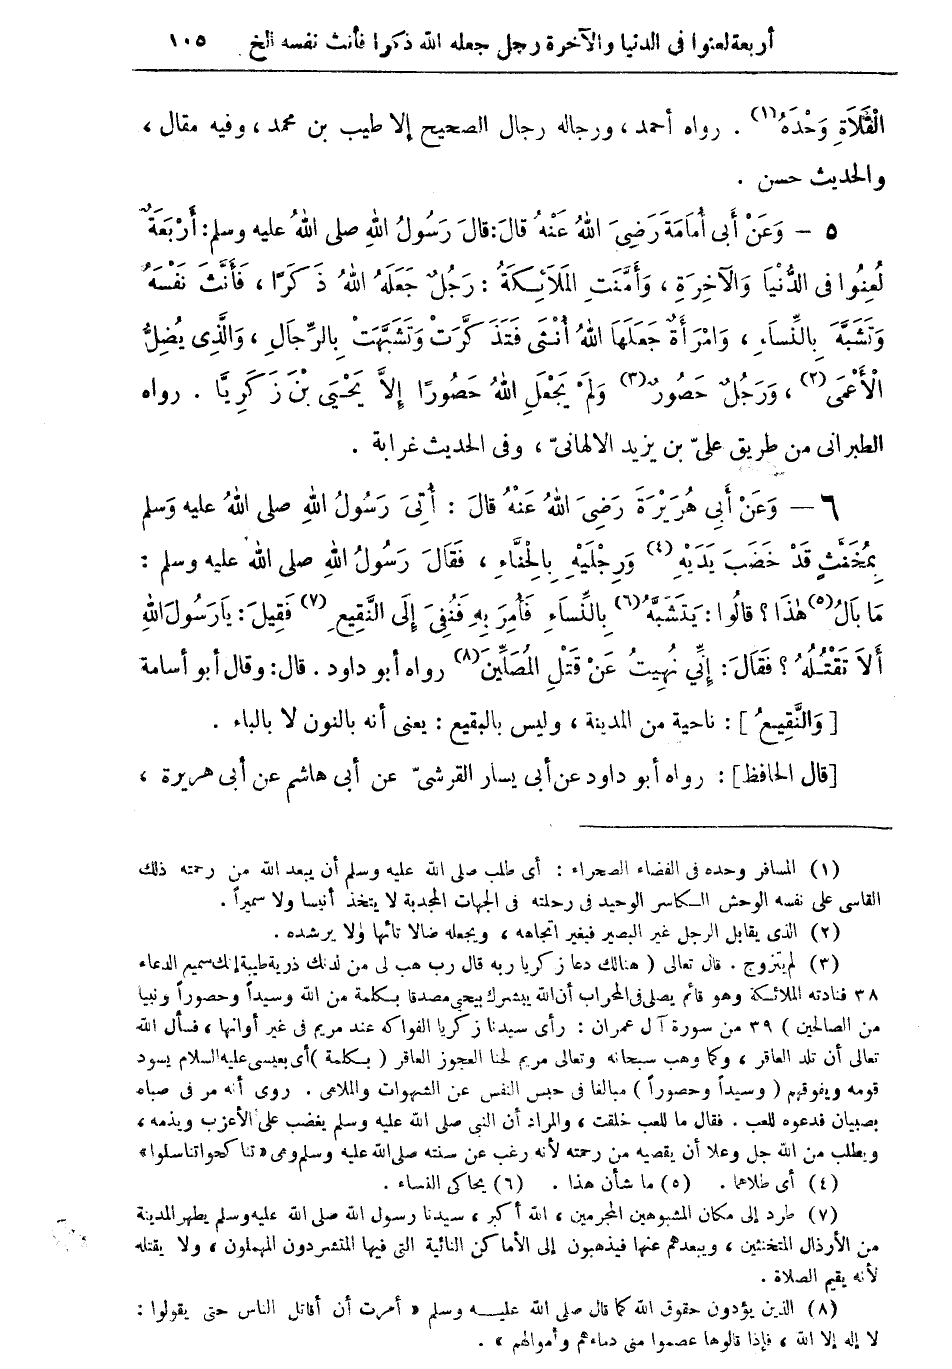 أربعة لعنوا فى الدنيا والآخرة رجل جعله الله ذكرا فأنث نفسه الخ ١٠٥
الْفَلَاةِ وَحْدَهُ (١) . رواه أحمد ، ورجاله رجال الصحيح إلا طيب بن محمد ، وفيه مقال ،
والحديث حسن .
٥ – وَعَنْ أَبِى أُمَامَةَ رَضِىَ اللهُ عَنْهُ قَالَ: قَالَ رَسُولُ اللهِ صلى اللهُ عليه وسلم: أَرْبَعَةٌ
لُعِنُوا فى الدُّنْيَا وَالآخِرَةِ ، وَأَمَّنَتِ المَلَائِكَةُ : رَجُلٌ جَعَلَهُ اللهُ ذَكَرًا ، فَأَنَّثَ نَفْسَهُ
وَتَشَبَّهَ بِالنِّسَاءِ ، وَامْرَأَةٌ جَعَلَهَا اللهُ أُنْثَى فَتَذَكَّرَتْ وَتَشَبَّهَتْ بِالرِّجَالِ ، وَالَّذِى يُضِلُّ
الْأَعْمَى (٢) ، وَرَجُلٌ حَصُورٌ (٣) وَلَمْ يَجْعَلِ اللهُ حَصُورًا إِلاَّ يَحْيَى بْنَ زَكَرِيَّا . رواه
الطبرانى من طريق علىّ بن يزيد الالهانىّ ، وفى الحديث غرابة .
٦ – وَعَنْ أَبِى هُرَيْرَةَ رَضِىَ اللهُ عَنْهُ قَالَ : أُتِىَ رَسُولُ اللهِ صلى اللهُ عليه وَسلم
بِمُخَنَّثٍ قَدْ خَضَبَ يَدَيْهِ (٤) وَرِجْلَيْهِ بِالْحِنَّاءِ ، فَقَالَ رَسُولُ اللهِ صلى اللهُ عليه وسلم :
مَا بَالُ (٥) هٰذَا ؟ قالُوا : يَتَشَبَّهُ (٦) بِالنِّسَاءِ فَأَمِرَ بِهِ فَنُفِىَ إِلَى النَّقِيعِ (٧) فَقِيلَ : يَارَسُولَ اللهِ
أَلاَ تَقْتُلُهُ ؟ فَقَالَ : إِنِّى نُهِيتُ عَنْ قَتْلِ المُصَلِّينَ (٨) رواه أبو داود . قال : وقال أبو أسامة
[ وَالنَّقِيعُ ] : ناحية من المدينة ، وليس بالبقيع : يعنى أنه بالنون لا بالباء .
[قال الحافظ] : رواه أبو داود عن أبى يسار القرشىّ عن أبى هاشم عن أبى هريرة ،
(١) المسافر وحده فى الفضاء الصحراء : أى طلب صلى الله عليه وسلم أن يبعد الله من رحمته ذلك
القاسى على نفسه الوحش الكاسر الوحيد فى رحلته فى الجهات المجدبة لا يتخذ أنيسا ولا سميراً .
(٢) الذى يقابل الرجل غير البصير فيغير اتجاهه ، ويجعله ضالا تائها ولا يرشده .
(٣) لم يتزوج . قال تعالى ( هنالك دعا زكريا ربه قال رب هب لى من لدنك ذرية طيبة إنك سميع الدعاء
٣٨ فنادته الملائكة وهو قائم يصلى فى المحراب أن الله يبشرك بيحيى مصدقا بكلمة من الله وسيداً وحصوراً ونبيا
من الصالحين ) ٣٩ من سورة آل عمران : رأى سيدنا زكريا الفواكه عند مريم فى غير أوانها ، فسأل الله
تعالى أن تلد العاقر ، وكما وهب سبحانه وتعالى مريم لحنا العجوز العاقر ( بكلمة ) أى بعيسى عليه السلام يسود
قومه ويفوقهم ( وسيداً وحصوراً ) مبالغا فى حبس النفس عن الشهوات والملاهى . روى أنه مر فى صباه
بصبيان فدعوه للعب . فقال ما للعب خلقت ، والمراد أن النبى صلى الله عليه وسلم يغضب على الأعزب ويذمه ،
ويطلب من الله جل وعلا أن يقصيه من رحمته لأنه رغب عن سنته صلى الله عليه وسلم وهى « تناكحوا تناسلوا »
(٤) أى طلاهما . (٥) ما شأن هذا . (٦) يحاكى النساء .
(٧) طرد إلى مكان المشبوهين المجرمين ، الله أكبر ، سيدنا رسول الله صلى الله عليه وسلم يطهر المدينة
من الأرذال المتخنثين ، ويبعدهم عنها فيذهبون إلى الأماكن النائية التى فيها المتشردون المهملون ، ولا يقتله
لأنه يقيم الصلاة .
(٨) الذين يؤدون حقوق الله كما قال صلى الله عليه وسلم « أمرت أن أقاتل الناس حتى يقولوا :
لا إله إلا الله ، فإذا قالوها عصموا منى دماءهم وأموالهم » .